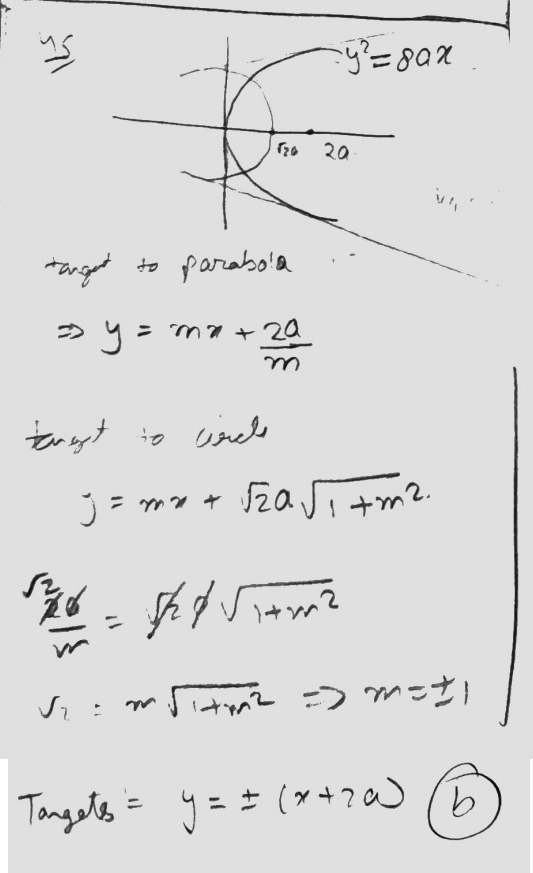 45
y² = 8ax
√2a 2a
tangent to parabola
⇒ y = mx + 2a/m
tangent to circle
y = mx + √2a √1+m².
√2 2a/m = √2 a √1+m²
√2 = m √1+m² ⇒ m = ±1
Tangets = y = ± (x+2a) b